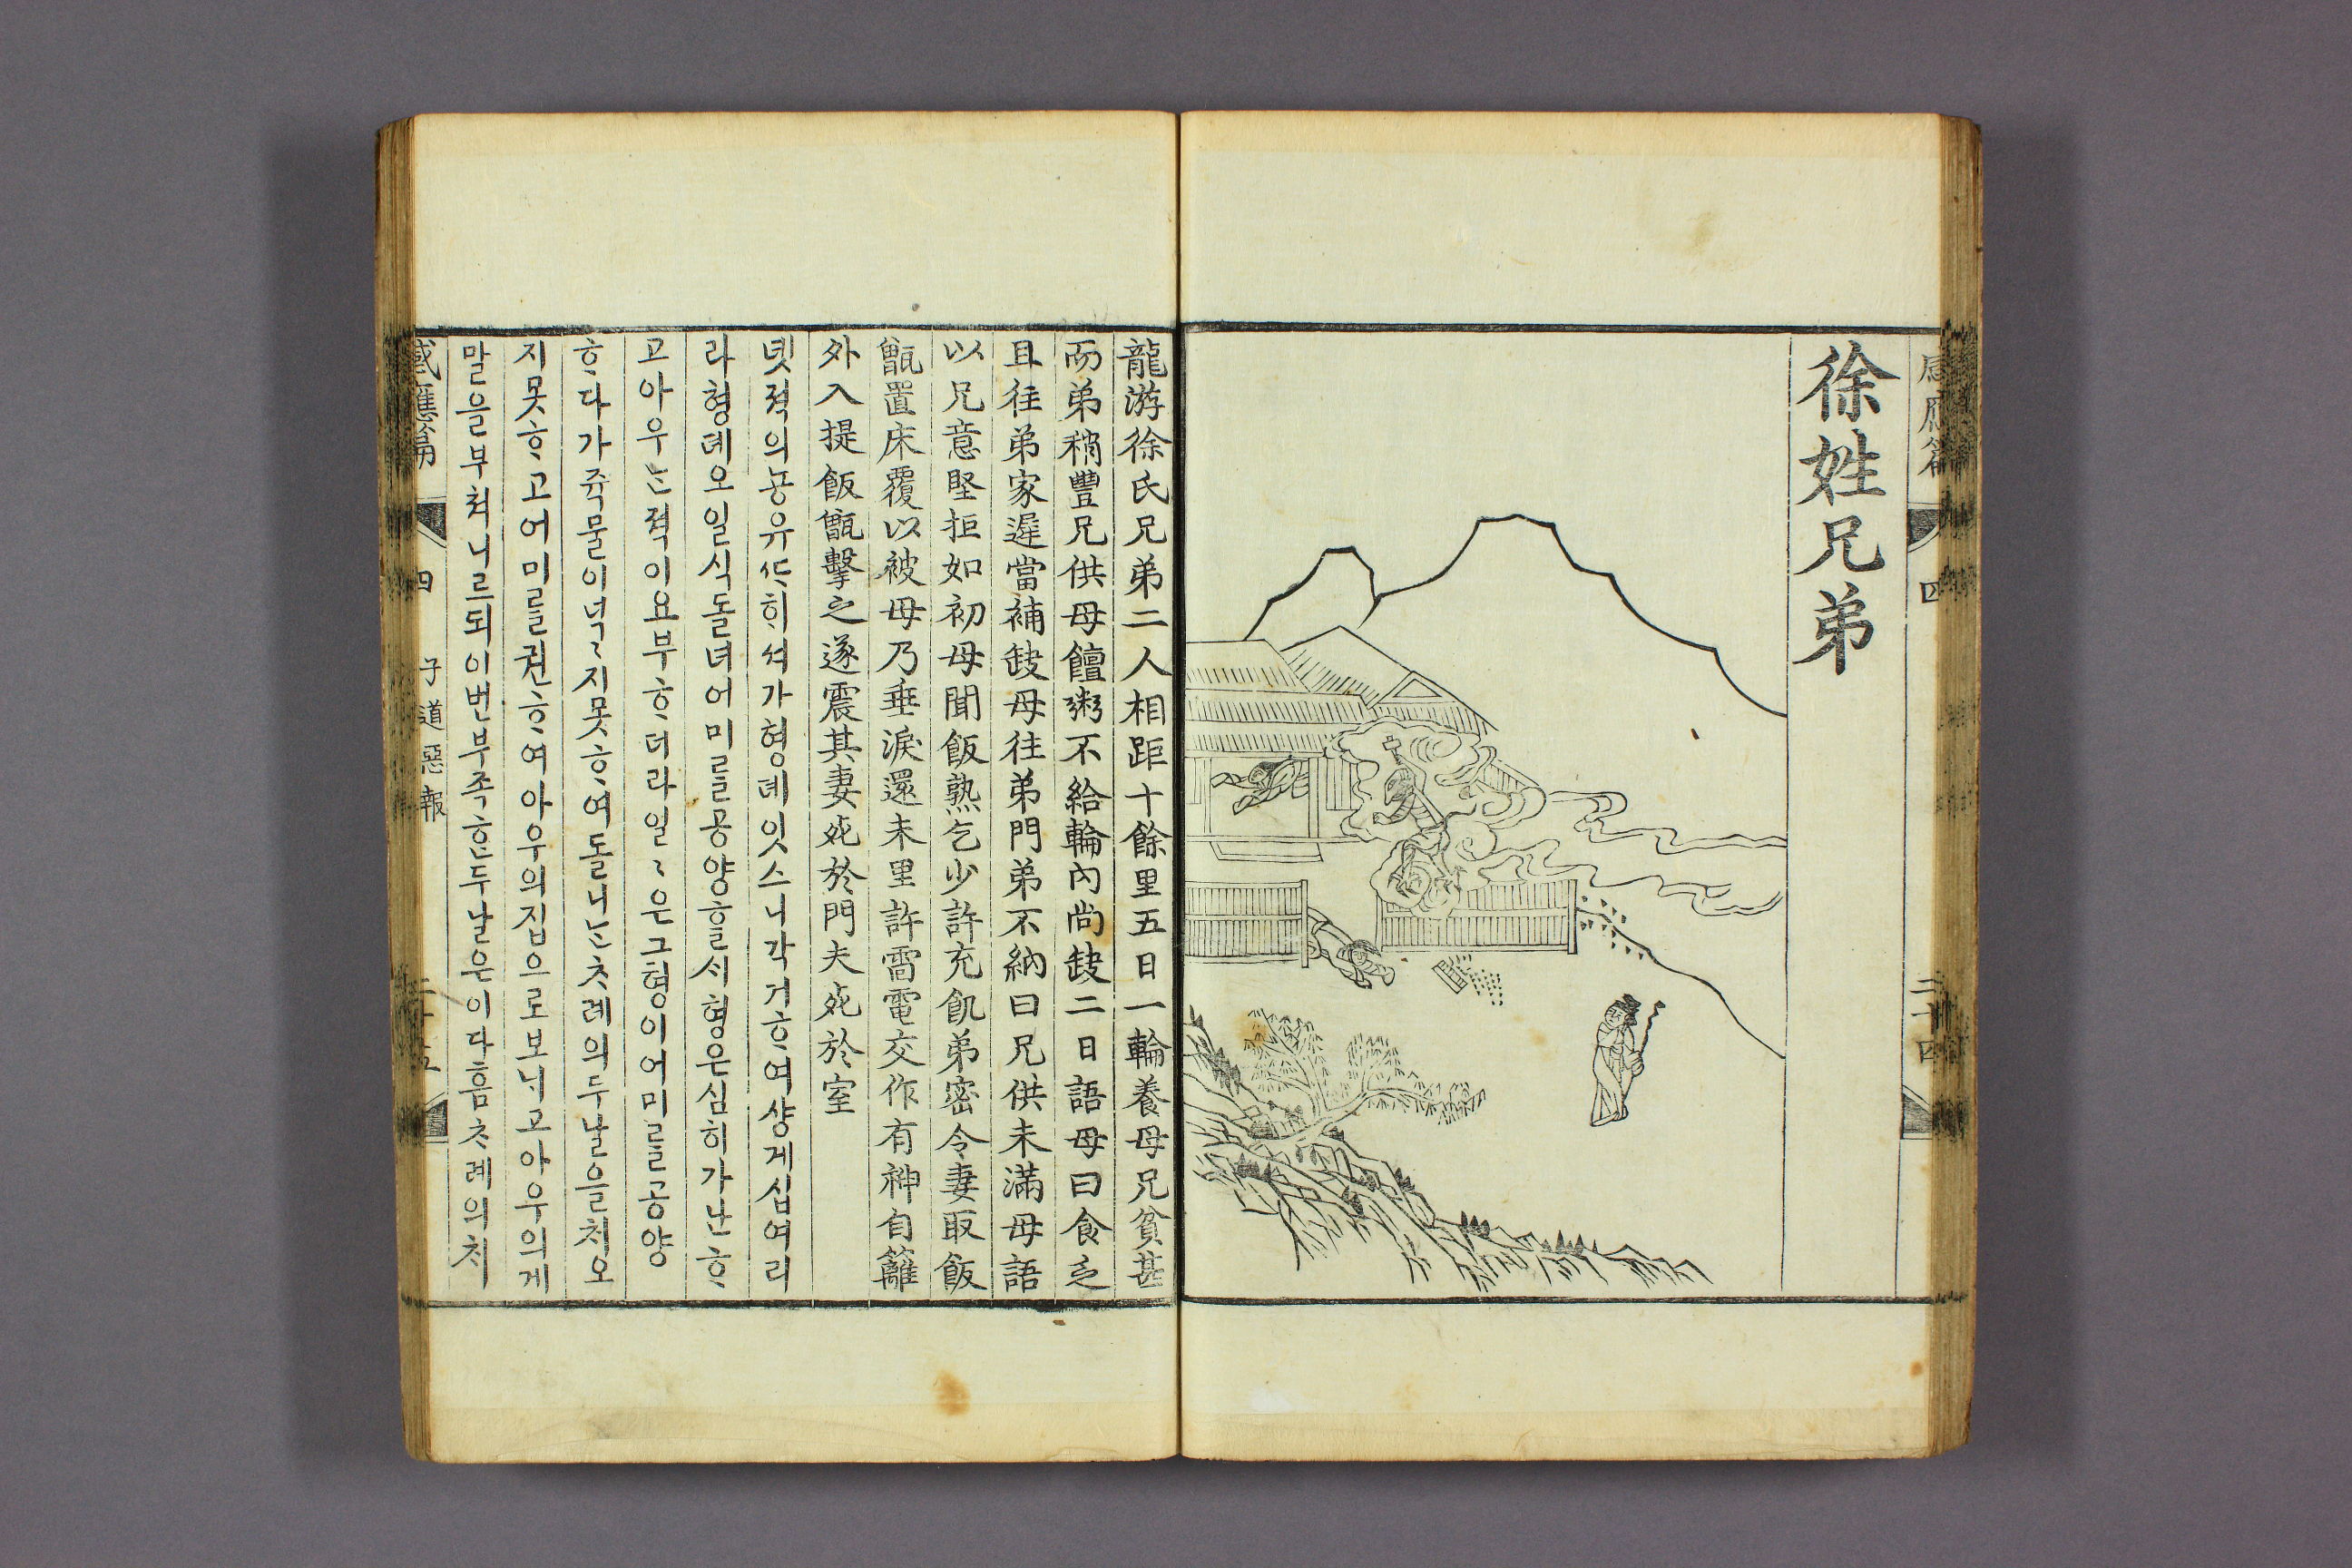 感應篇 四 二十四
徐姓兄弟
龍游徐氏兄弟二人相距十餘里五日一輪養母兄貧甚
而弟稍豐兄供母饘粥不給輪內尚缺二日語母曰食乏
且往弟家遲當補缺母往弟門弟不納曰兄供未滿母語
以兄意堅拒如初母聞飯熟乞少許充飢弟密令妻取飯
甑置床覆以被母乃垂淚還未里許雷電交作有神自籬
外入提飯甑擊之遂震其妻死於門夫死於室
녯젹의 뇽유ᄯᆞᄒᆡ 셔가 형뎨 잇스니 각거ᄒᆞ여 샹게 십여 리
라 형뎨 오일식 돌녀 어미ᄅᆞᆯ 공양ᄒᆞᆯᄉᆡ 형은 심히 가난ᄒᆞ
고 아우ᄂᆞᆫ 젹이 요부ᄒᆞ더라 일〻은 그 형이 어미ᄅᆞᆯ 공양
ᄒᆞ다가 쥭물이 넉〻지 못ᄒᆞ여 돌니ᄂᆞᆫ ᄎᆞ례의 두 날을 ᄎᆡ오
지 못ᄒᆞ고 어미ᄅᆞᆯ 권ᄒᆞ여 아우의 집으로 보ᄂᆡ고 아우의게
말을 부쳐 니르되 이번 부족ᄒᆞᆫ 두 날은 이 다음 ᄎᆞ례의 ᄎᆡ
感應篇 四 子道惡報 二十五